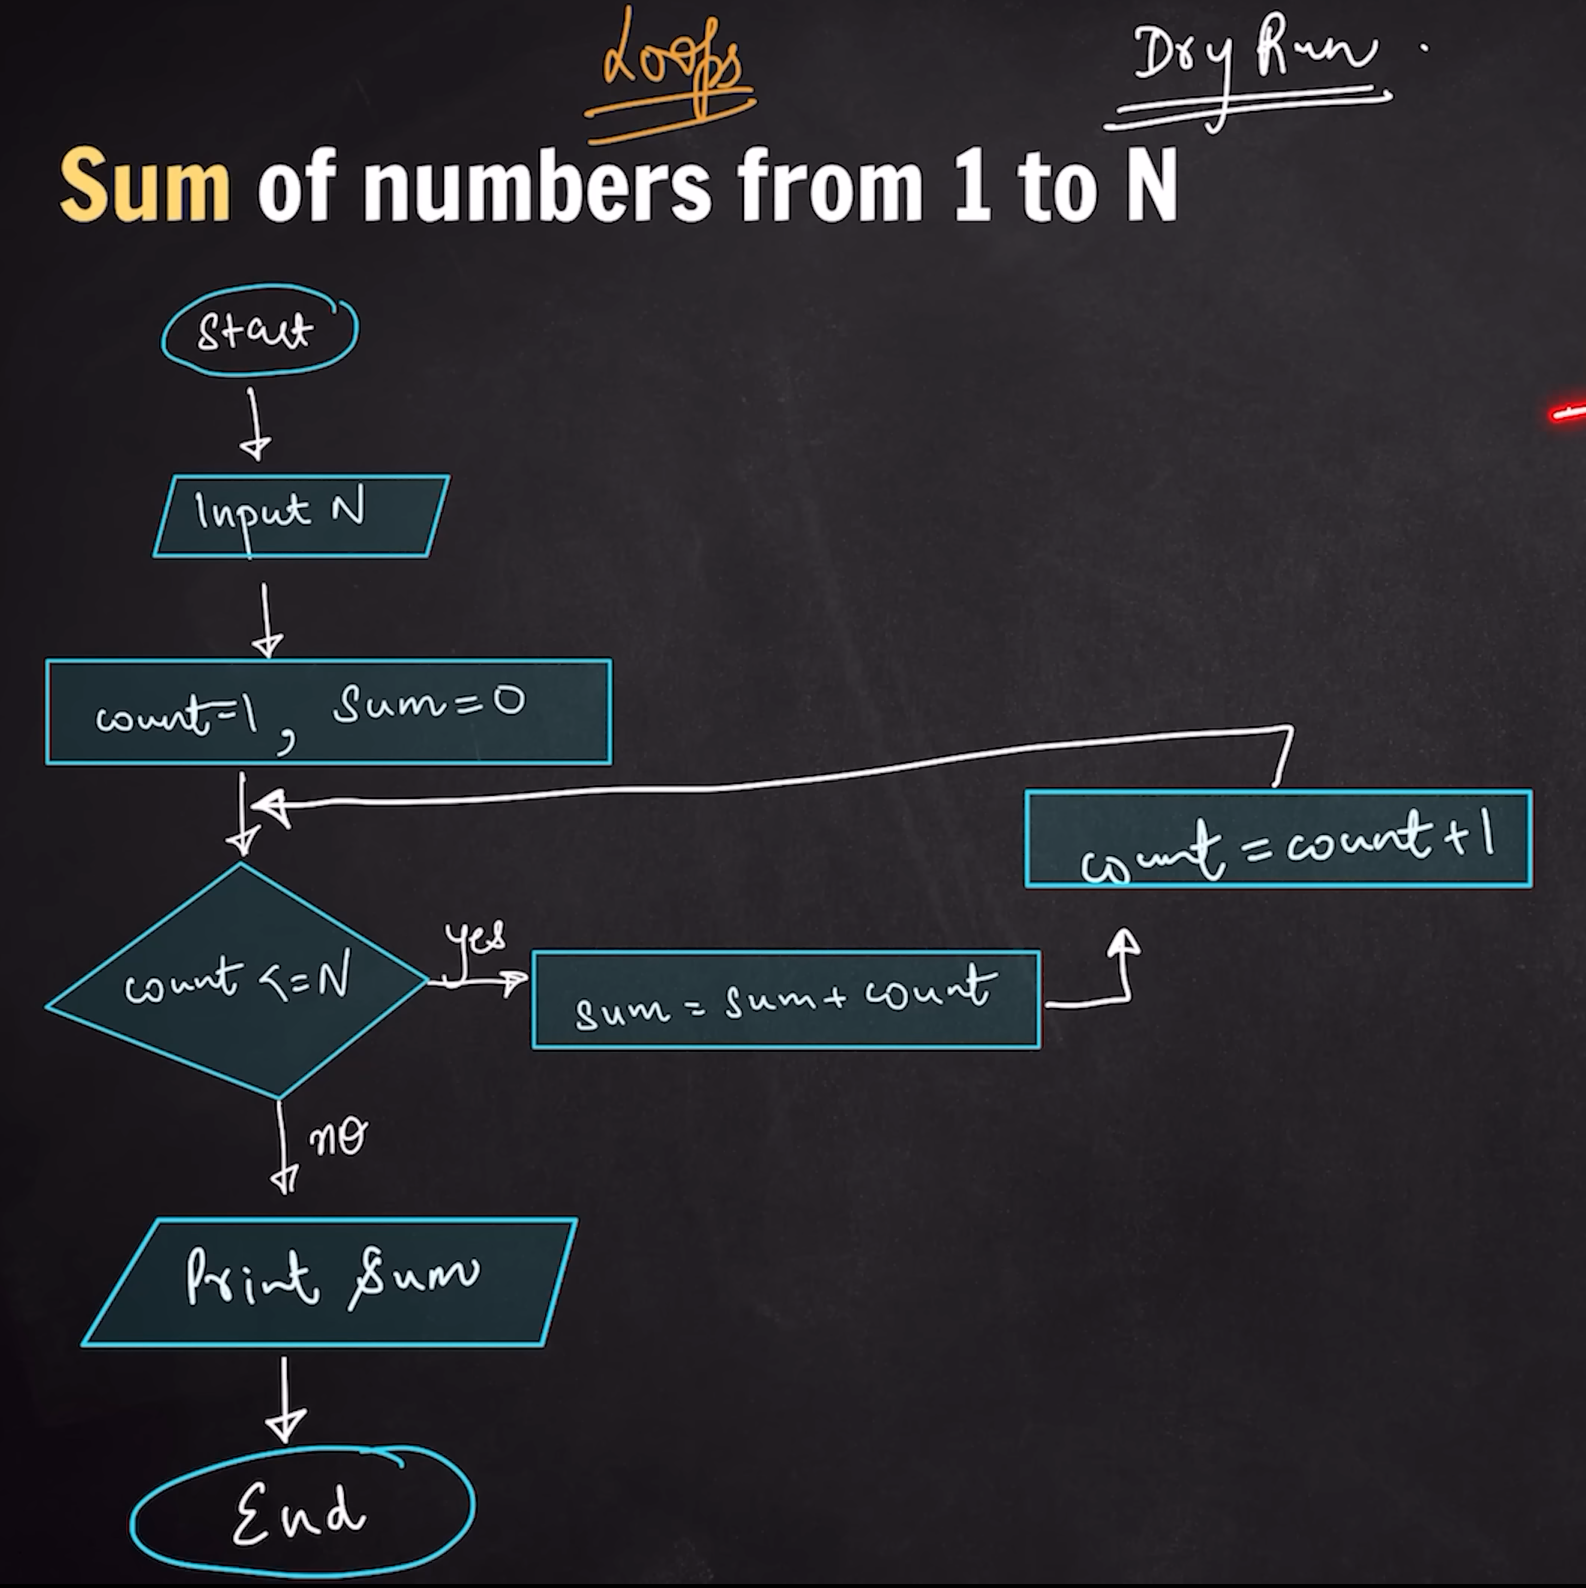 Loops
Dry Run .
Sum of numbers from 1 to N
Start
Input N
count=1, Sum=0
count = count+1
count <=N
yes
sum = sum + count
no
Print Sum
End